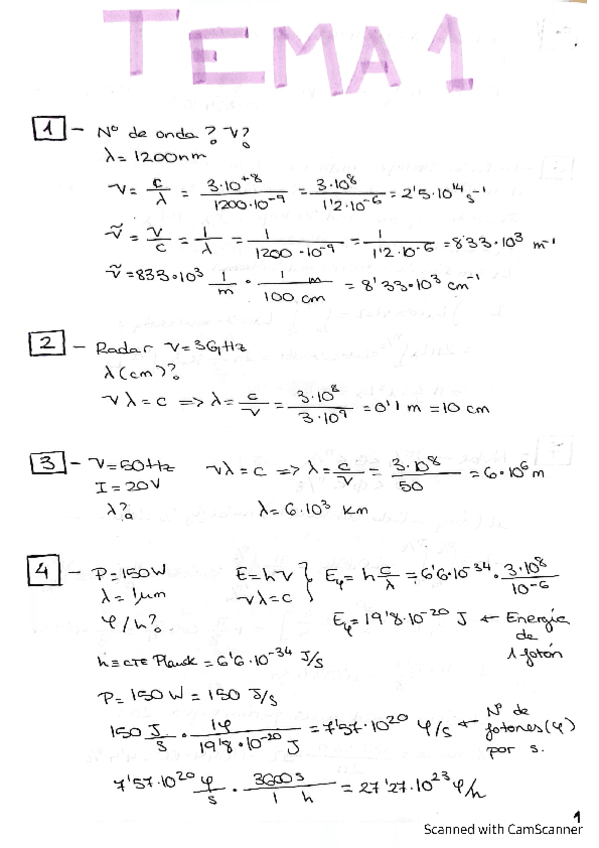 TEMA 1
1 - Nº de onda? ν?
λ = 1200nm
ν = c/λ = 3·10⁺⁸/1200·10⁻⁹ = 3·10⁸/1'2·10⁻⁶ = 2'5·10¹⁴ s⁻¹
ν̃ = ν/c = 1/λ = 1/1200·10⁻⁹ = 1/1'2·10⁻⁶ = 833·10³ m⁻¹
ν̃ = 833·10³ 1/m · 1 m/100 cm = 8'33·10³ cm⁻¹
2 - Radar ν = 3GHz
λ(cm)?
νλ = c => λ = c/ν = 3·10⁸/3·10⁹ = 0'1 m = 10 cm
3 - ν = 50Hz νλ = c => λ = c/ν = 3·10⁸/50 = 6·10⁶ m
I = 20V
λ? λ = 6·10³ km
4 - P = 150W E = hν } Eφ = h c/λ = 6'6·10⁻³⁴ · 3·10⁸/10⁻⁶
λ = 1μm νλ = c
φ/h? Eφ = 19'8·10⁻²⁰ J ← Energía de 1 fotón
h ≡ cte Planck = 6'6·10⁻³⁴ J/s
P = 150 W = 150 J/s
150 J/s · 1φ/19'8·10⁻²⁰ J = 7'57·10²⁰ φ/s ← Nº de fotones (φ) por s.
7'57·10²⁰ φ/s · 3600 s/1 h = 27'27·10²³ φ/h
1
Scanned with CamScanner